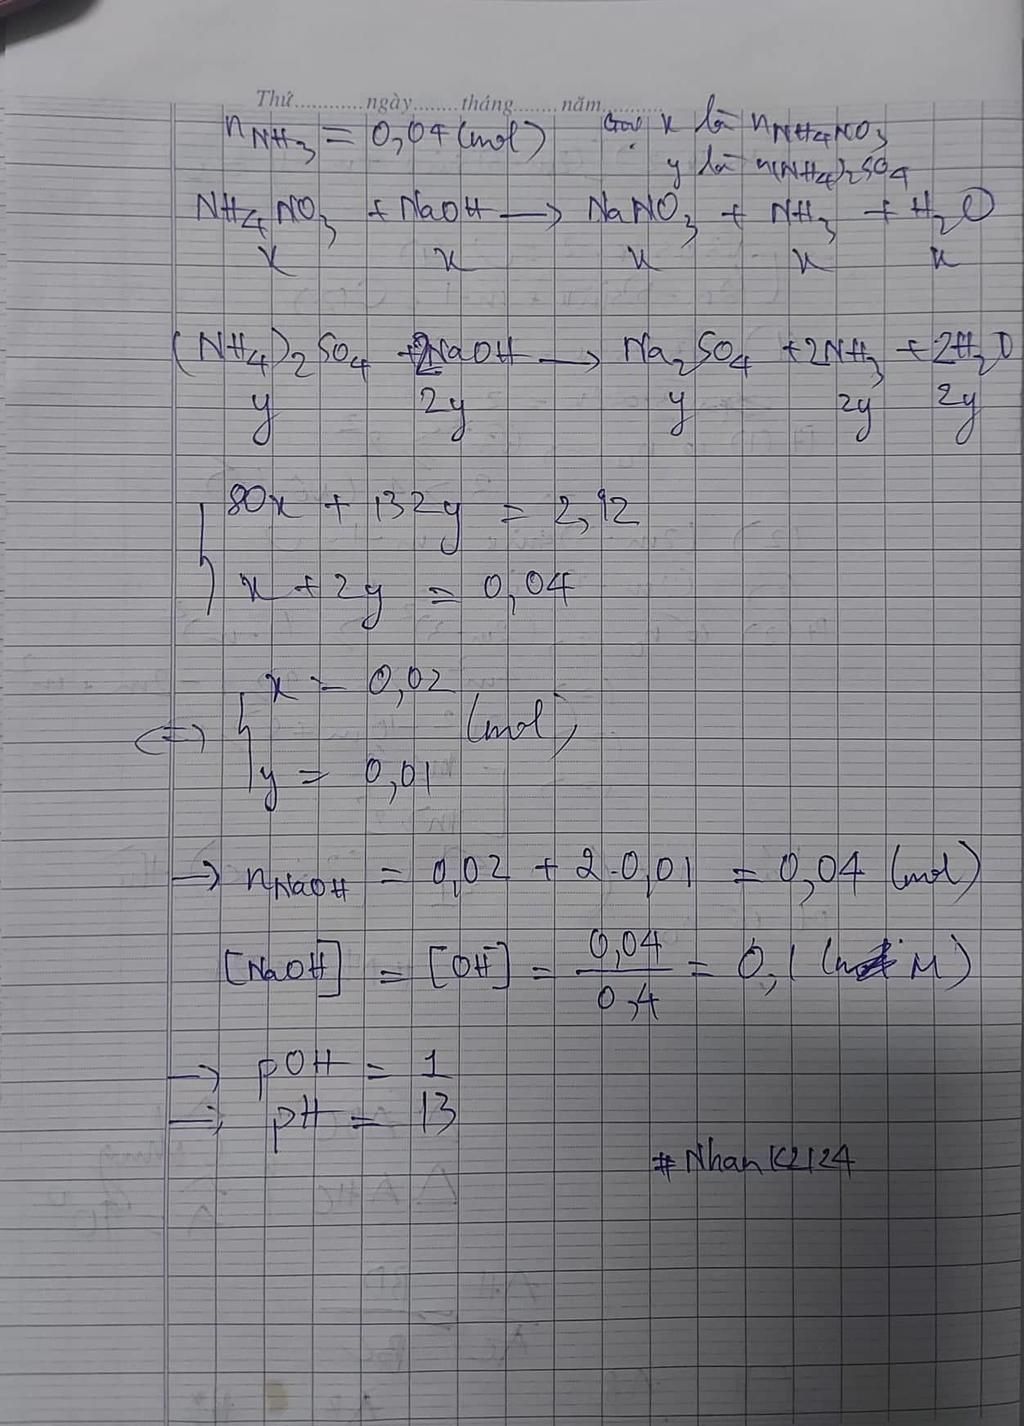 Thứ............ngày........tháng........năm...........
nNH3 = 0,04 (mol) Gọi x là nNH4NO3
y là n(NH4)2SO4
NH4NO3 + NaOH → NaNO3 + NH3 + H2O
x x x x x
(NH4)2SO4 + 2NaOH → Na2SO4 + 2NH3 + 2H2O
y 2y y 2y 2y
80x + 132y = 2,92
x + 2y = 0,04
x = 0,02
⇔ (mol)
y = 0,01
→ nNaOH = 0,02 + 2.0,01 = 0,04 (mol)
[NaOH] = [OH-] = 0,04/0,4 = 0,1 (M)
→ pOH = 1
⇒ pH = 13
#NhanK2124